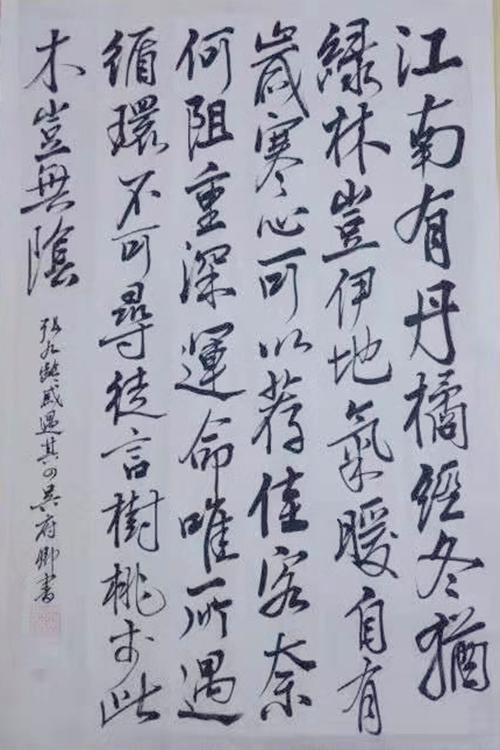 江南有丹橘經冬猶
綠林豈伊地氣暖自有
歲寒心可以荐佳客奈
何阻重深運命唯所遇
循環不可尋徒言樹桃李此
木豈無陰
張九齡感遇其四吳府卿書